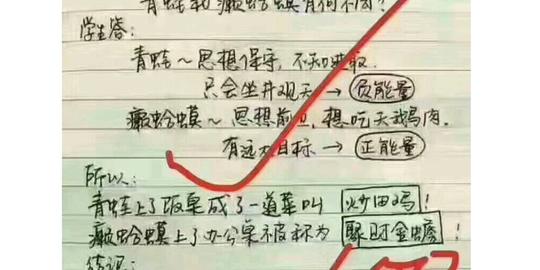 青蛙和癞蛤蟆有何不同？
学生答：
青蛙～思想保守，不知进取．
只会坐井观天→负能量
癞蛤蟆～思想前卫，想吃天鹅肉．
有远大目标→正能量
所以：
青蛙上了饭桌成了一道菜叫 炒田鸡！
癞蛤蟆上了办公桌被称为 聚财金蟾！
结论：